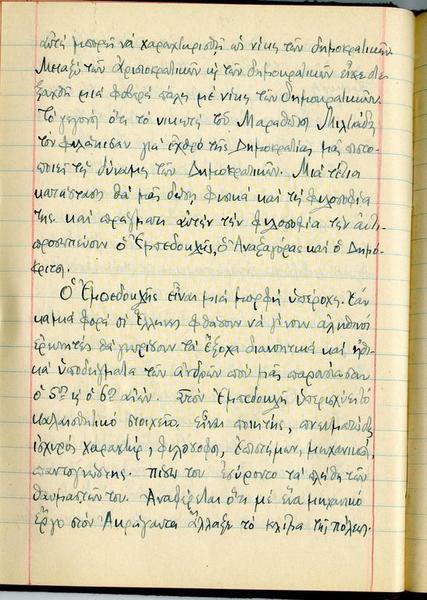 αὐτὴ μπορεῖ νὰ χαρακτηρισθῇ ὡς νίκη τῶν δημοκρατικῶν.
Μεταξὺ τῶν ἀριστοκρατικῶν κ τῶν δημοκρατικῶν εἶχε διε-
ξαχθῆ μιὰ φοβερὴ πάλη μὲ νίκη τῶν δημοκρατικῶν.
Τὸ γεγονὸς ὅτι τὸ νικητὴ τοῦ Μαραθῶνος Μιλτιάδη
τὸν φυλάκισαν γιὰ ἐχθρὸ τῆς Δημοκρατίας μᾶς πιστο-
ποιεῖ τὴ δύναμη τῶν Δημοκρατικῶν. Μιὰ τέτοια
κατάσταση θὰ μᾶς δώσῃ φυσικὰ καὶ τὴ φιλοσοφία
της καὶ πράγματι αὐτὴν τὴν φιλοσοφία τὴν ἀντι-
προσωπεύουν ὁ Ἐμπεδοκλῆς, ὁ Ἀναξαγόρας καὶ ὁ Δημό-
κριτος.
Ὁ Ἐμπεδοκλῆς εἶναι μιὰ μορφὴ ὑπέροχη. Ἐὰν
καμιὰ φορὰ οἱ Ἕλληνες φθάσουν νὰ γίνουν ἀληθινοὶ
ἐρευνητὲς θὰ γνωρίσουν τὰ ἔξοχα διανοητικὰ καὶ ἠθι-
κὰ ὑποδείγματα τῶν ἀνδρῶν ποὺ μᾶς παρουσίασαν
ὁ 5ος κ ὁ 6ος αἰών. Στὸν Ἐμπεδοκλῆ ὑπερισχύει τὸ
καλαισθητικὸ στοιχεῖο. Εἶναι ποιητής, πνευματώδης,
ἰσχυρὸς χαρακτήρ, φιλόσοφος, ἐπιστήμων, μηχανικός,
παντογνώστης. Πίσω του ἐσύροντο τὰ πλήθη τῶν
θαυμαστῶν του. Ἀναφέρεται ὅτι μὲ ἕνα μηχανικὸ
ἔργο στὸν Ἀκράγαντα ἄλλαξε τὸ κλῖμα τῆς πόλεως.